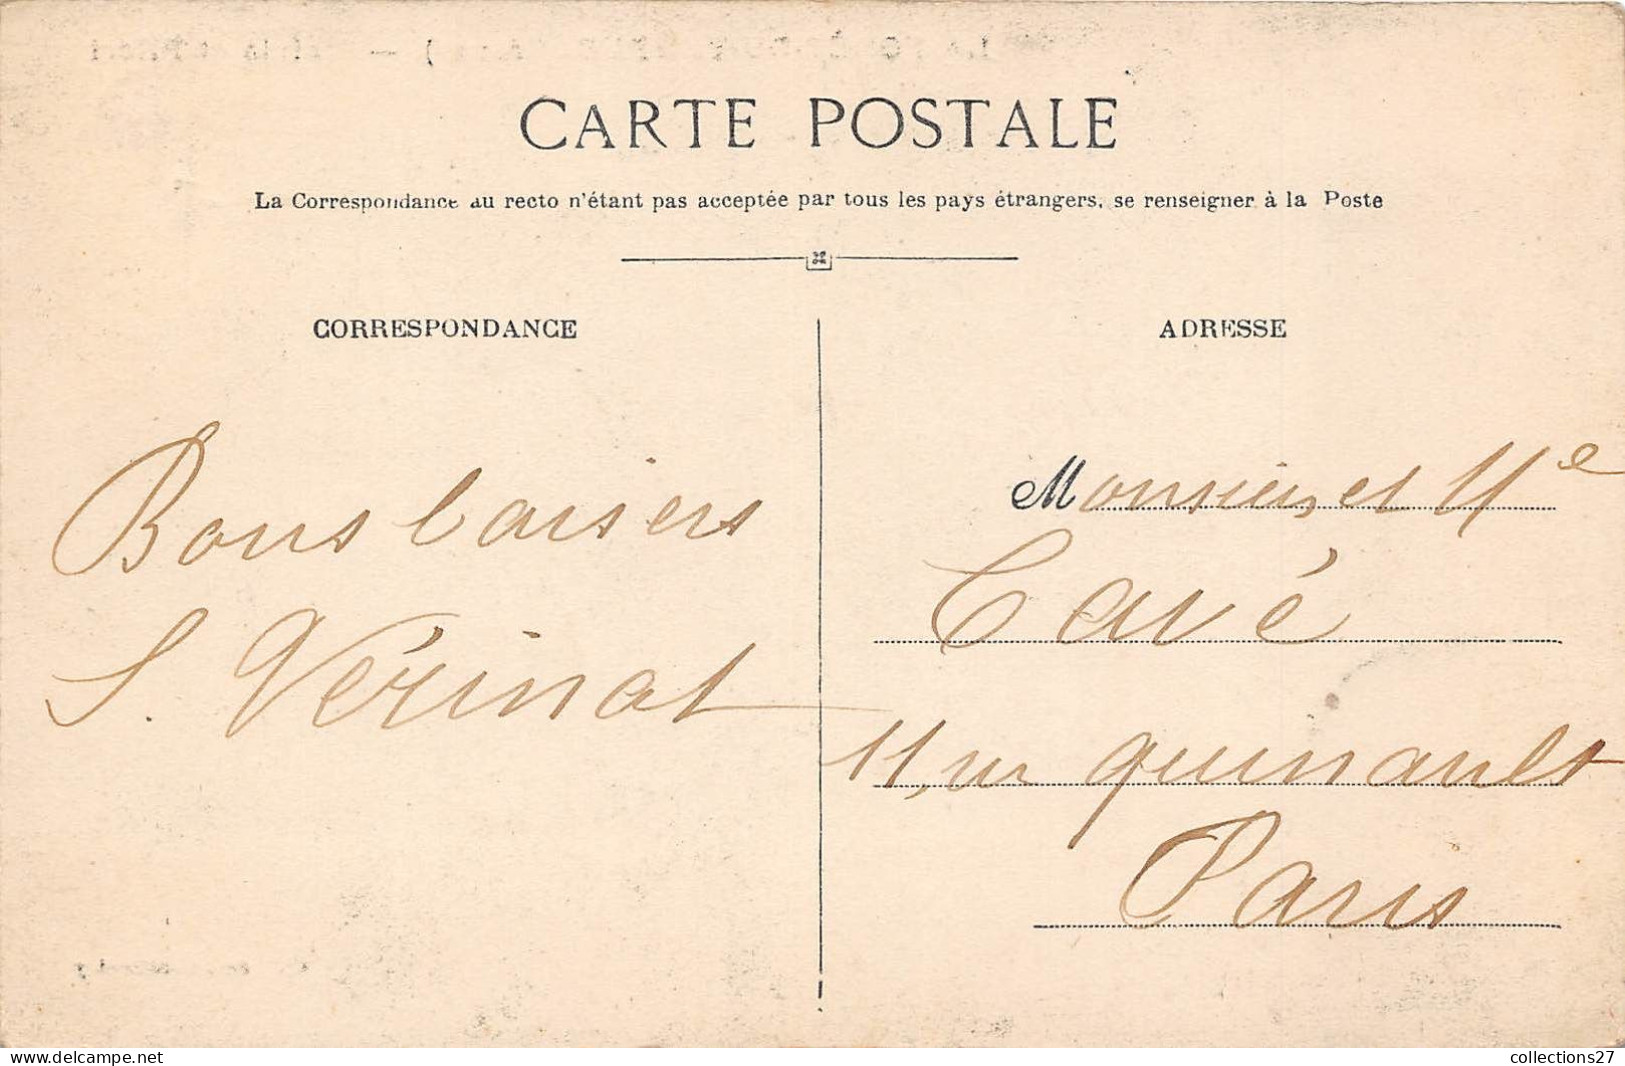 CARTE POSTALE
La Correspondance au recto n'étant pas acceptée par tous les pays étrangers, se renseigner à la Poste
CORRESPONDANCE
Bons baisers
S. Vérinat
ADRESSE
Monsieur et Me
Cavé
11, rue quinault
Paris
www.delcampe.net
collections27